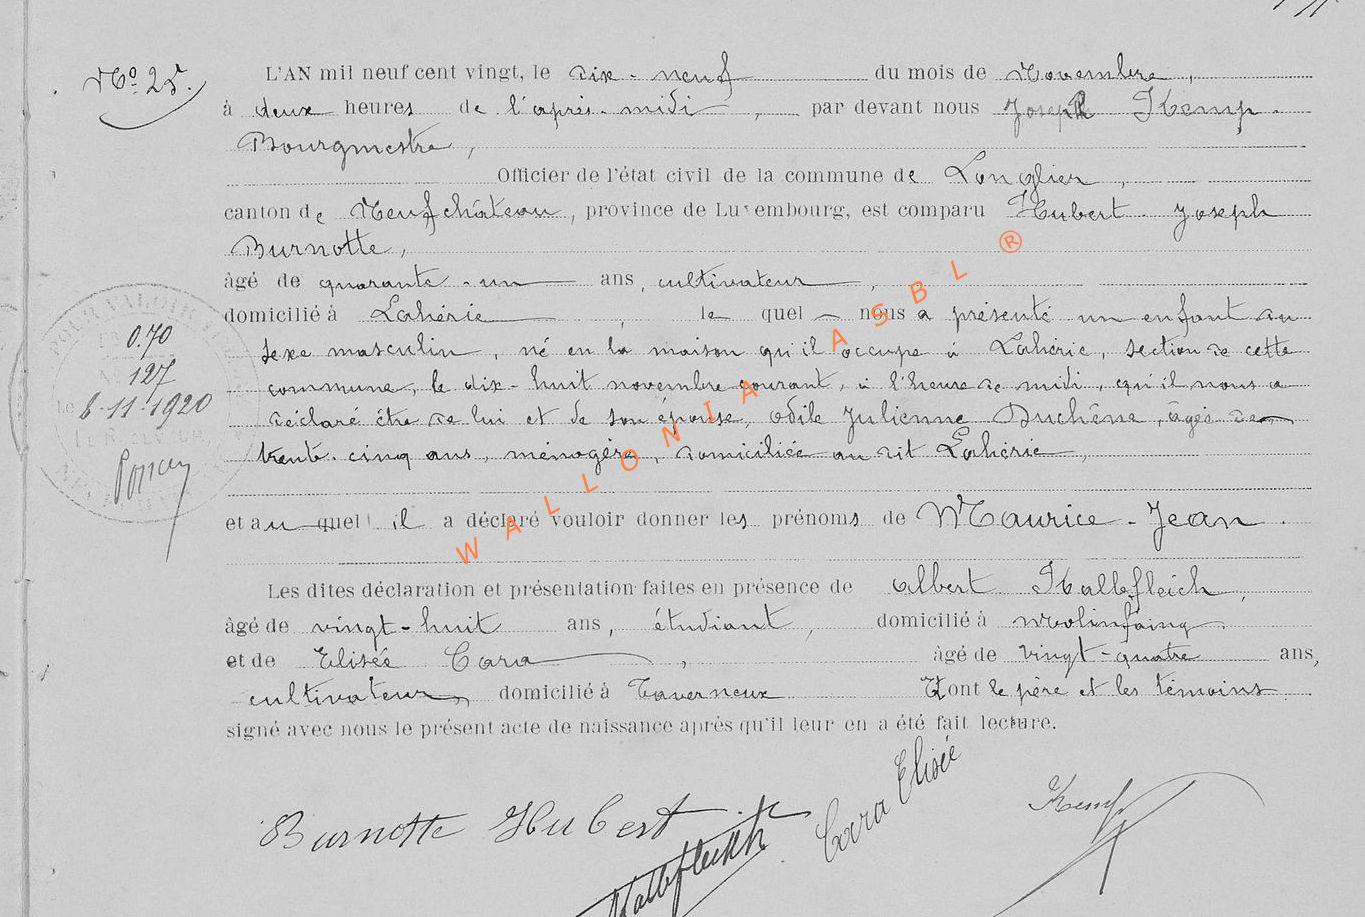 No. 25.
L'AN mil neuf cent vingt, le dix-neuf du mois de Novembre,
à deux heures de l'après-midi, par devant nous Joseph Kemp.
Bourgmestre,
Officier de l'état civil de la commune de Longlier,
canton de Neufchâteau, province de Luxembourg, est comparu Hubert Joseph
Burnotte,
âgé de quarante-un ans, cultivateur,
domicilié à Lahérie, le quel nous a présenté un enfant du
sexe masculin, né en la maison qu'il occupe à Lahérie, section de cette
commune, le dix-huit novembre courant, à l'heure de midi, qu'il nous a
déclaré être de lui et de son épouse, Odile Julienne Duchêne, âgée de
trente-cinq ans, ménagère, domiciliée au dit Lahérie,
et auquel il a déclaré vouloir donner les prénoms de Maurice-Jean.
Les dites déclaration et présentation faites en présence de Albert Kallefleich,
âgé de vingt-huit ans, étudiant, domicilié à Molinfaing
et de Elisée Cara, âgé de vingt-quatre ans,
cultivateur, domicilié à Taverneux Et ont le père et les témoins
signé avec nous le présent acte de naissance après qu'il leur en a été fait lecture.
POUR VALOIR T
FR 0.70
127
Le 6-11-1920
LE RECEVEUR,
Burnotte Hubert
Cara Elisée
Kemp
WALLONIA ASBL ®